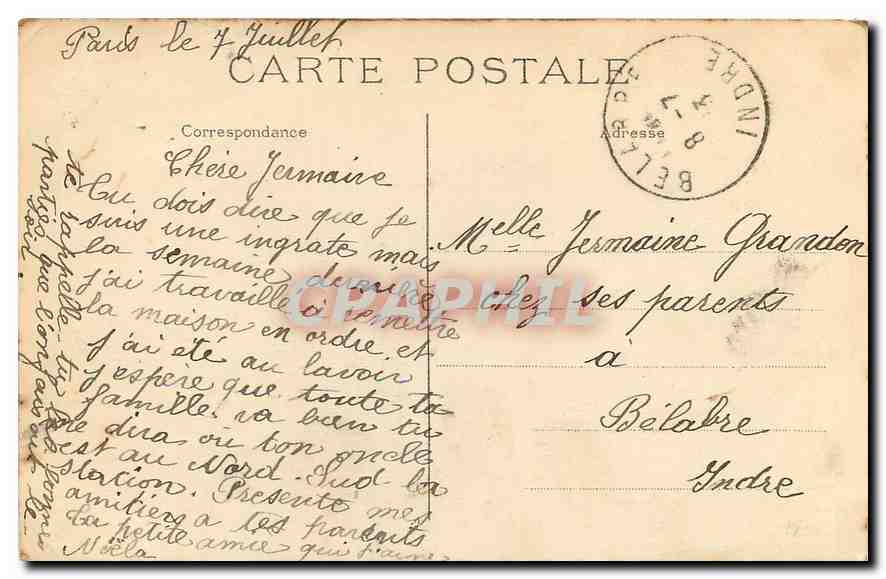 Paris le 7 Juillet
CARTE POSTALE
Correspondance
Adresse
BELABRE
INDRE
8 - 7
Chère Jermaine
Tu dois dire que je
suis une ingrate mais
la semaine dernière
j'ai travaillé à remettre
la maison en ordre et
j'ai été au lavoir
j'espère que toute ta
famille va bien tu
me dira où ton oncle
est au Nord-Sud la
station. Presente mes
amitiers a tes parents
ta petite amie qui t'aime
Noëla
te rappelle-tu les bonnes
parties que l'on faisait le
soir
Melle Jermaine Grandon
chez ses parents
à
Bélabre
Indre
CPAPHIL